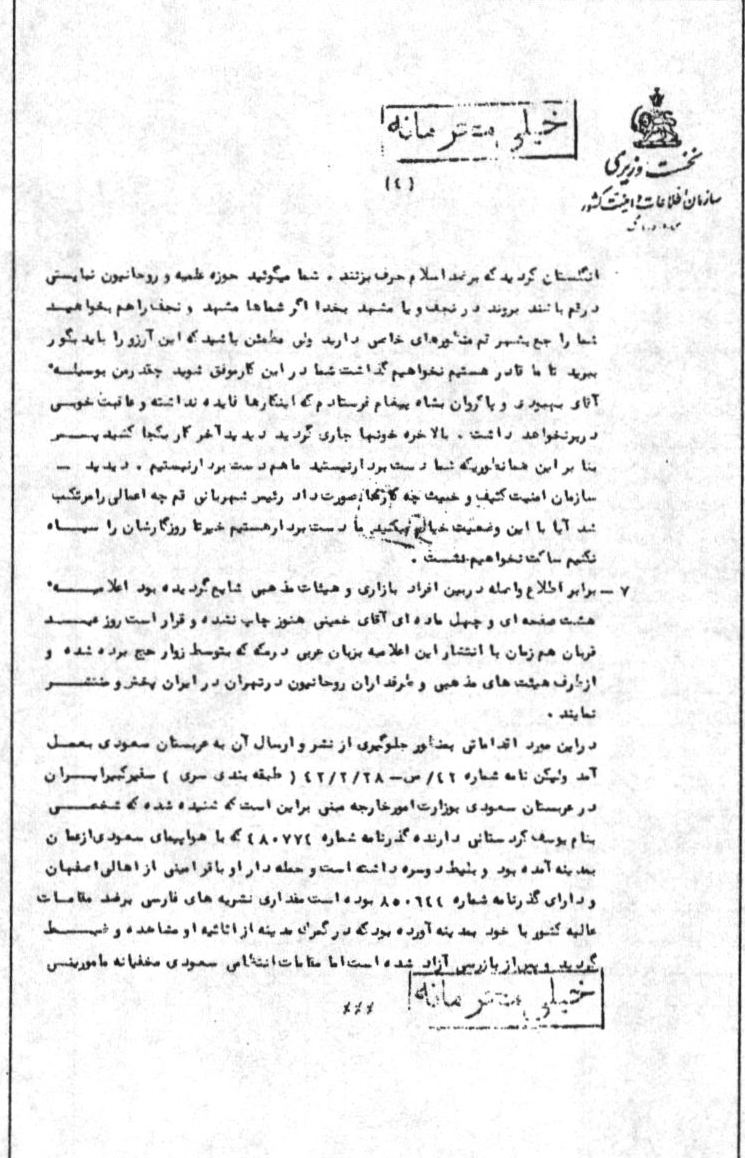 خیلی محرمانه
نخست وزیری
سازمان اطلاعات و امنیت کشور
(٤)
انگلستان کردید که برضد اسلام حرف بزنند . شما میگوئید حوزه علمیه و روحانیون نبایستی
درقم باشند بروند در نجف و یا مشهد بخدا اگر شماها مشهد و نجف را هم بخواهید
شما را جع بشهر قم منظورهای خاصی دارید ولی مطمئن باشید که این آرزو را باید بگور
ببرید تا ما قادر هستیم نخواهیم گذاشت شما در این کار موفق شوید چقدر من بوسیله
آقای بهبودی و پاکروان بشاه پیغام فرستادم که اینکارها فایده نداشته و عاقبت خوبی
در بر نخواهد داشت . بالاخره خونها جاری گردید دیدید آخر کار بکجا کشید پس
بنا بر این همانطوریکه شما دست بردار نیستید ما هم دست بردار نیستیم . دیدید —
سازمان امنیت کثیف و خبیث چه کارها صورت داد رئیس شهربانی قم چه اعمالی را مرتکب
شد آیا با این وضعیت خیال میکنید ما دست بردار هستیم خیر تا روزگارشان را سیاه
نکنیم ساکت نخواهیم نشست .
۷ — برابر اطلاع واصله دربین افراد بازاری و هیئات مذهبی شایع گردیده بود اعلامیه
هشت صفحه ای و چهل ماده ای آقای خمینی هنوز چاپ نشده و قرار است روز عید
قربان هم زمان با انتشار این اعلامیه بزبان عربی درمکه که بتوسط زوار حج برده شده و
ازطرف هیئت های مذهبی و طرفداران روحانیون درتهران در ایران پخش و منتشر
نمایند .
دراین مورد اقداماتی بمنظور جلوگیری از نشر و ارسال آن به عربستان سعودی بعمل
آمد ولیکن نامه شماره ٤٢/س— ٤٢/٢/٢٨ ( طبقه بندی سری ) سفیرکبیر ایران
در عربستان سعودی بوزارت امورخارجه مبنی براین است که شنیده شده که شخصی
بنام یوسف کردستانی دارنده گذرنامه شماره ٤٨٠٧٧٤ که با هواپیمای سعودی از عمان
بمدینه آمده بود و بلیط دوسره داشته است و حمله دار او باقر امینی از اهالی اصفهان
و دارای گذرنامه شماره ٨٥٠٦٤٤ بوده است مقداری نشریه های فارسی برضد مقامات
عالیه کشور با خود بمدینه آورده بود که در گمرک مدینه از اثاثیه او مشاهده و ضبط
گردید و پس از بازرسی آزاد شده است اما مقامات انتظامی سعودی مخفیانه مامورینی
خیلی محرمانه